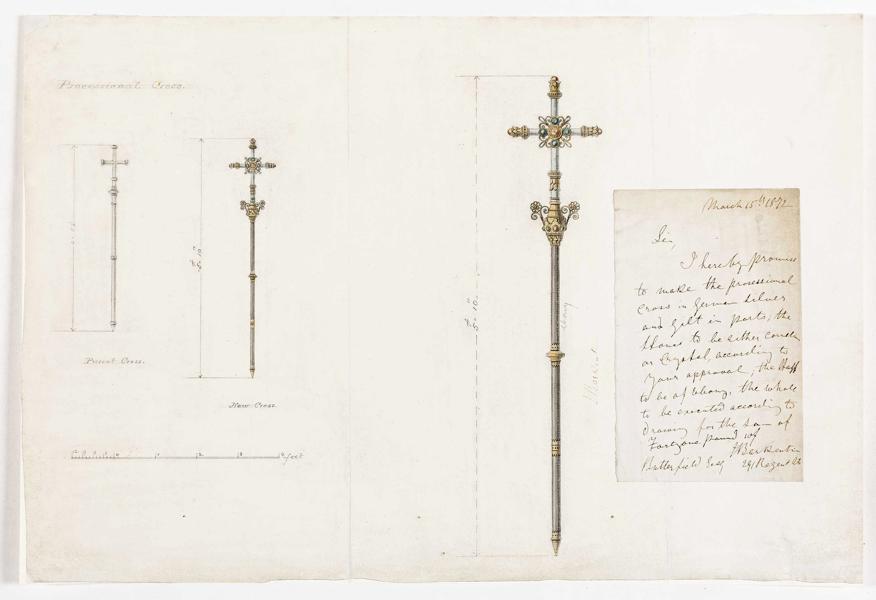 Processional Cross.
Present Cross.
New Cross
feet
5 . 10
5 . 10
ebony
March 15th 1872
Sir,
I hereby promise
to make the processional
Cross in German silver
and gilt in parts, the
stones to be either
or Crystal, according to
your approval, the staff
to be of ebony, the whole
to be executed according to
drawing for the sum of
pound
Butterfield Esq Regent St